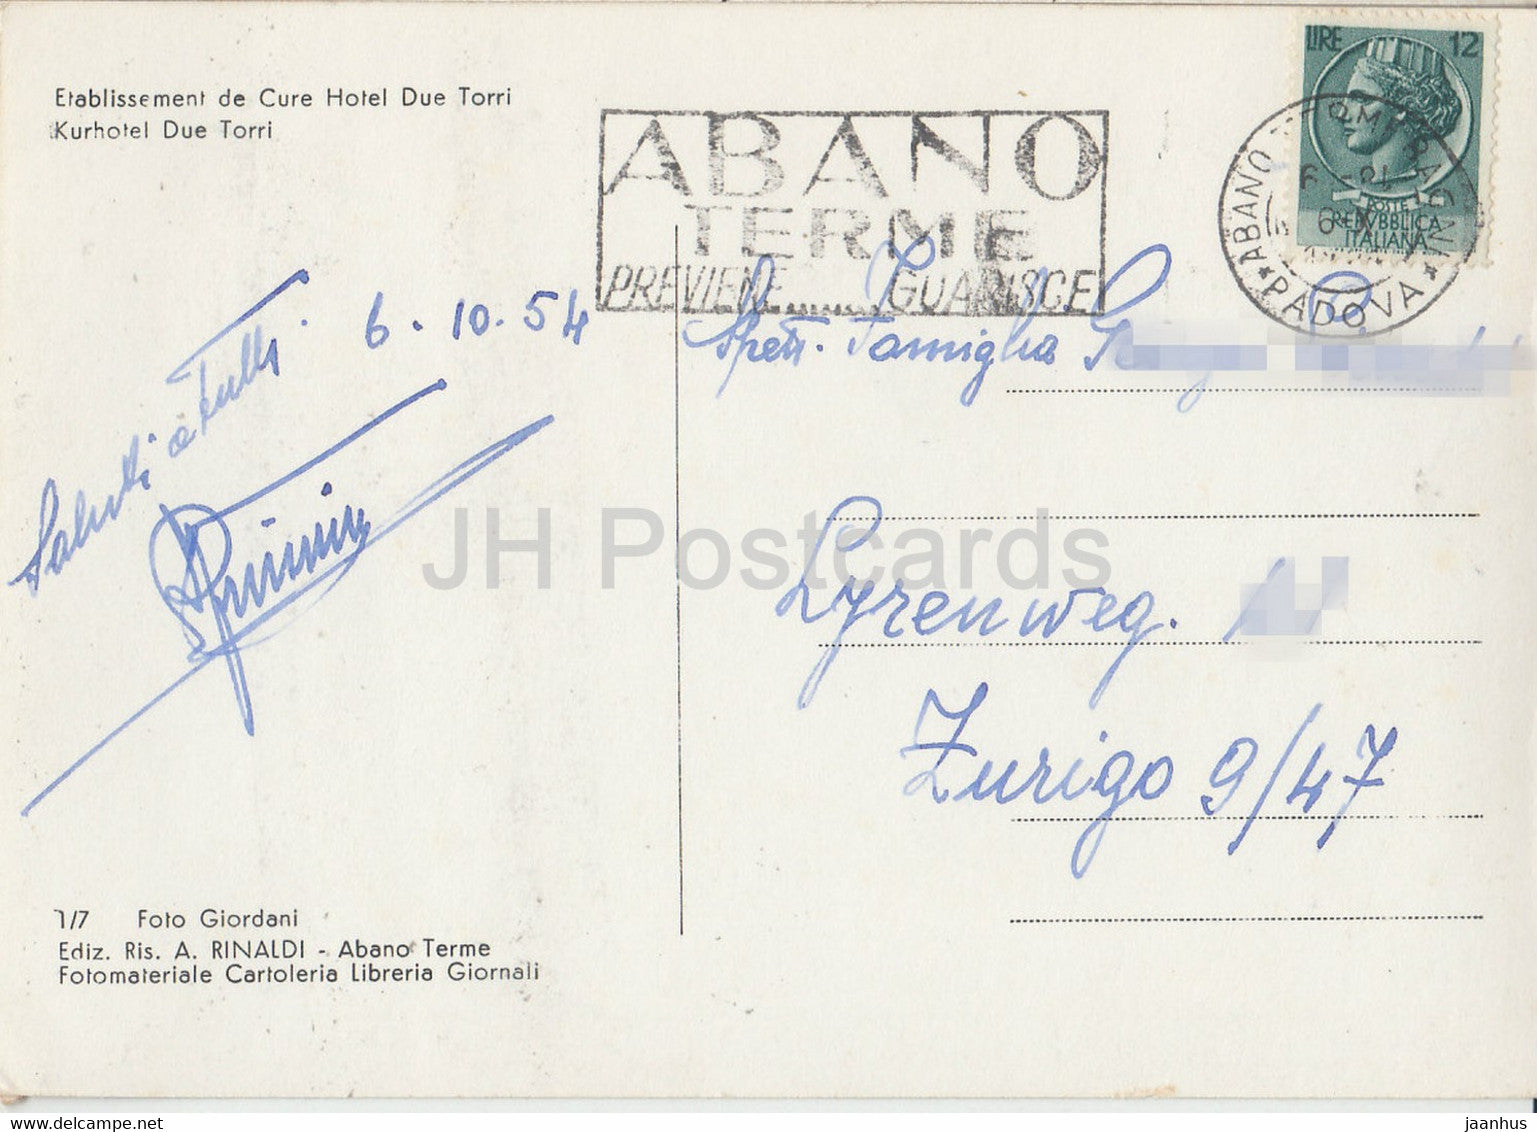 Etablissement de Cure Hotel Due Torri
Kurhotel Due Torri
LIRE 12
POSTE
REPVBBLICA
ITALIANA
ABANO
TERME
PREVIENE...... GUARISCE
ABANO
PADOVA
6.10.54
Saluti a tutti
Spett. Famiglia
Lyrenweg.
Zurigo 9/47
JH Postcards
1/7 Foto Giordani
Ediz. Ris. A. RINALDI - Abano Terme
Fotomateriale Cartoleria Libreria Giornali
www.delcampe.net
jaanhus